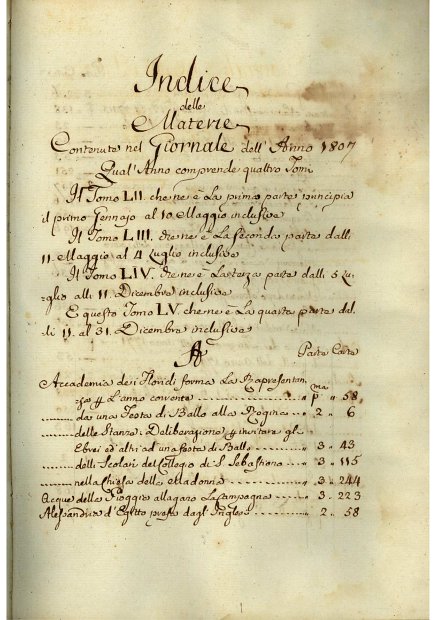 Indice
delle
Materie
Contenute nel Giornale dell'Anno 1807
Qual'Anno comprende quattro Tomi
Il Tomo LII. che ne è La prima parte principia
il primo Gennajo al 10. Maggio inclusive
Il Tomo LIII. che ne è La seconda parte dalli
11. Maggio al 4 Luglio inclusive
Il Tomo LIV. che ne è La terza parte dalli 5 Lu-
glio alli 11. Dicembre inclusive
E questo Tomo LV. che ne è La quarta parte dal-
li 11. al 31. Dicembre inclusive
A
Parte Carte
Accademia dei Floridi forma La Rapresentan
za p L'anno corrente ........ " pma " 58
........ da una Festa di Ballo alla Regina ... " 2 " 6
........ delle Stanze: Deliberazione p invitare gli
Ebrei ed altri ad una festa di Ballo ...... " 3 " 43
........ delli Scolari del Collegio di S. Sebastiano ... " 3 " 115
........ nella Chiesa della Madonna ........ " 3 " 244
Acque della Pioggia allagaro La Campagna ..... " 3 " 223
Alessandria d'Egitto presa dagl'Inglesi ..... " 2 " 58